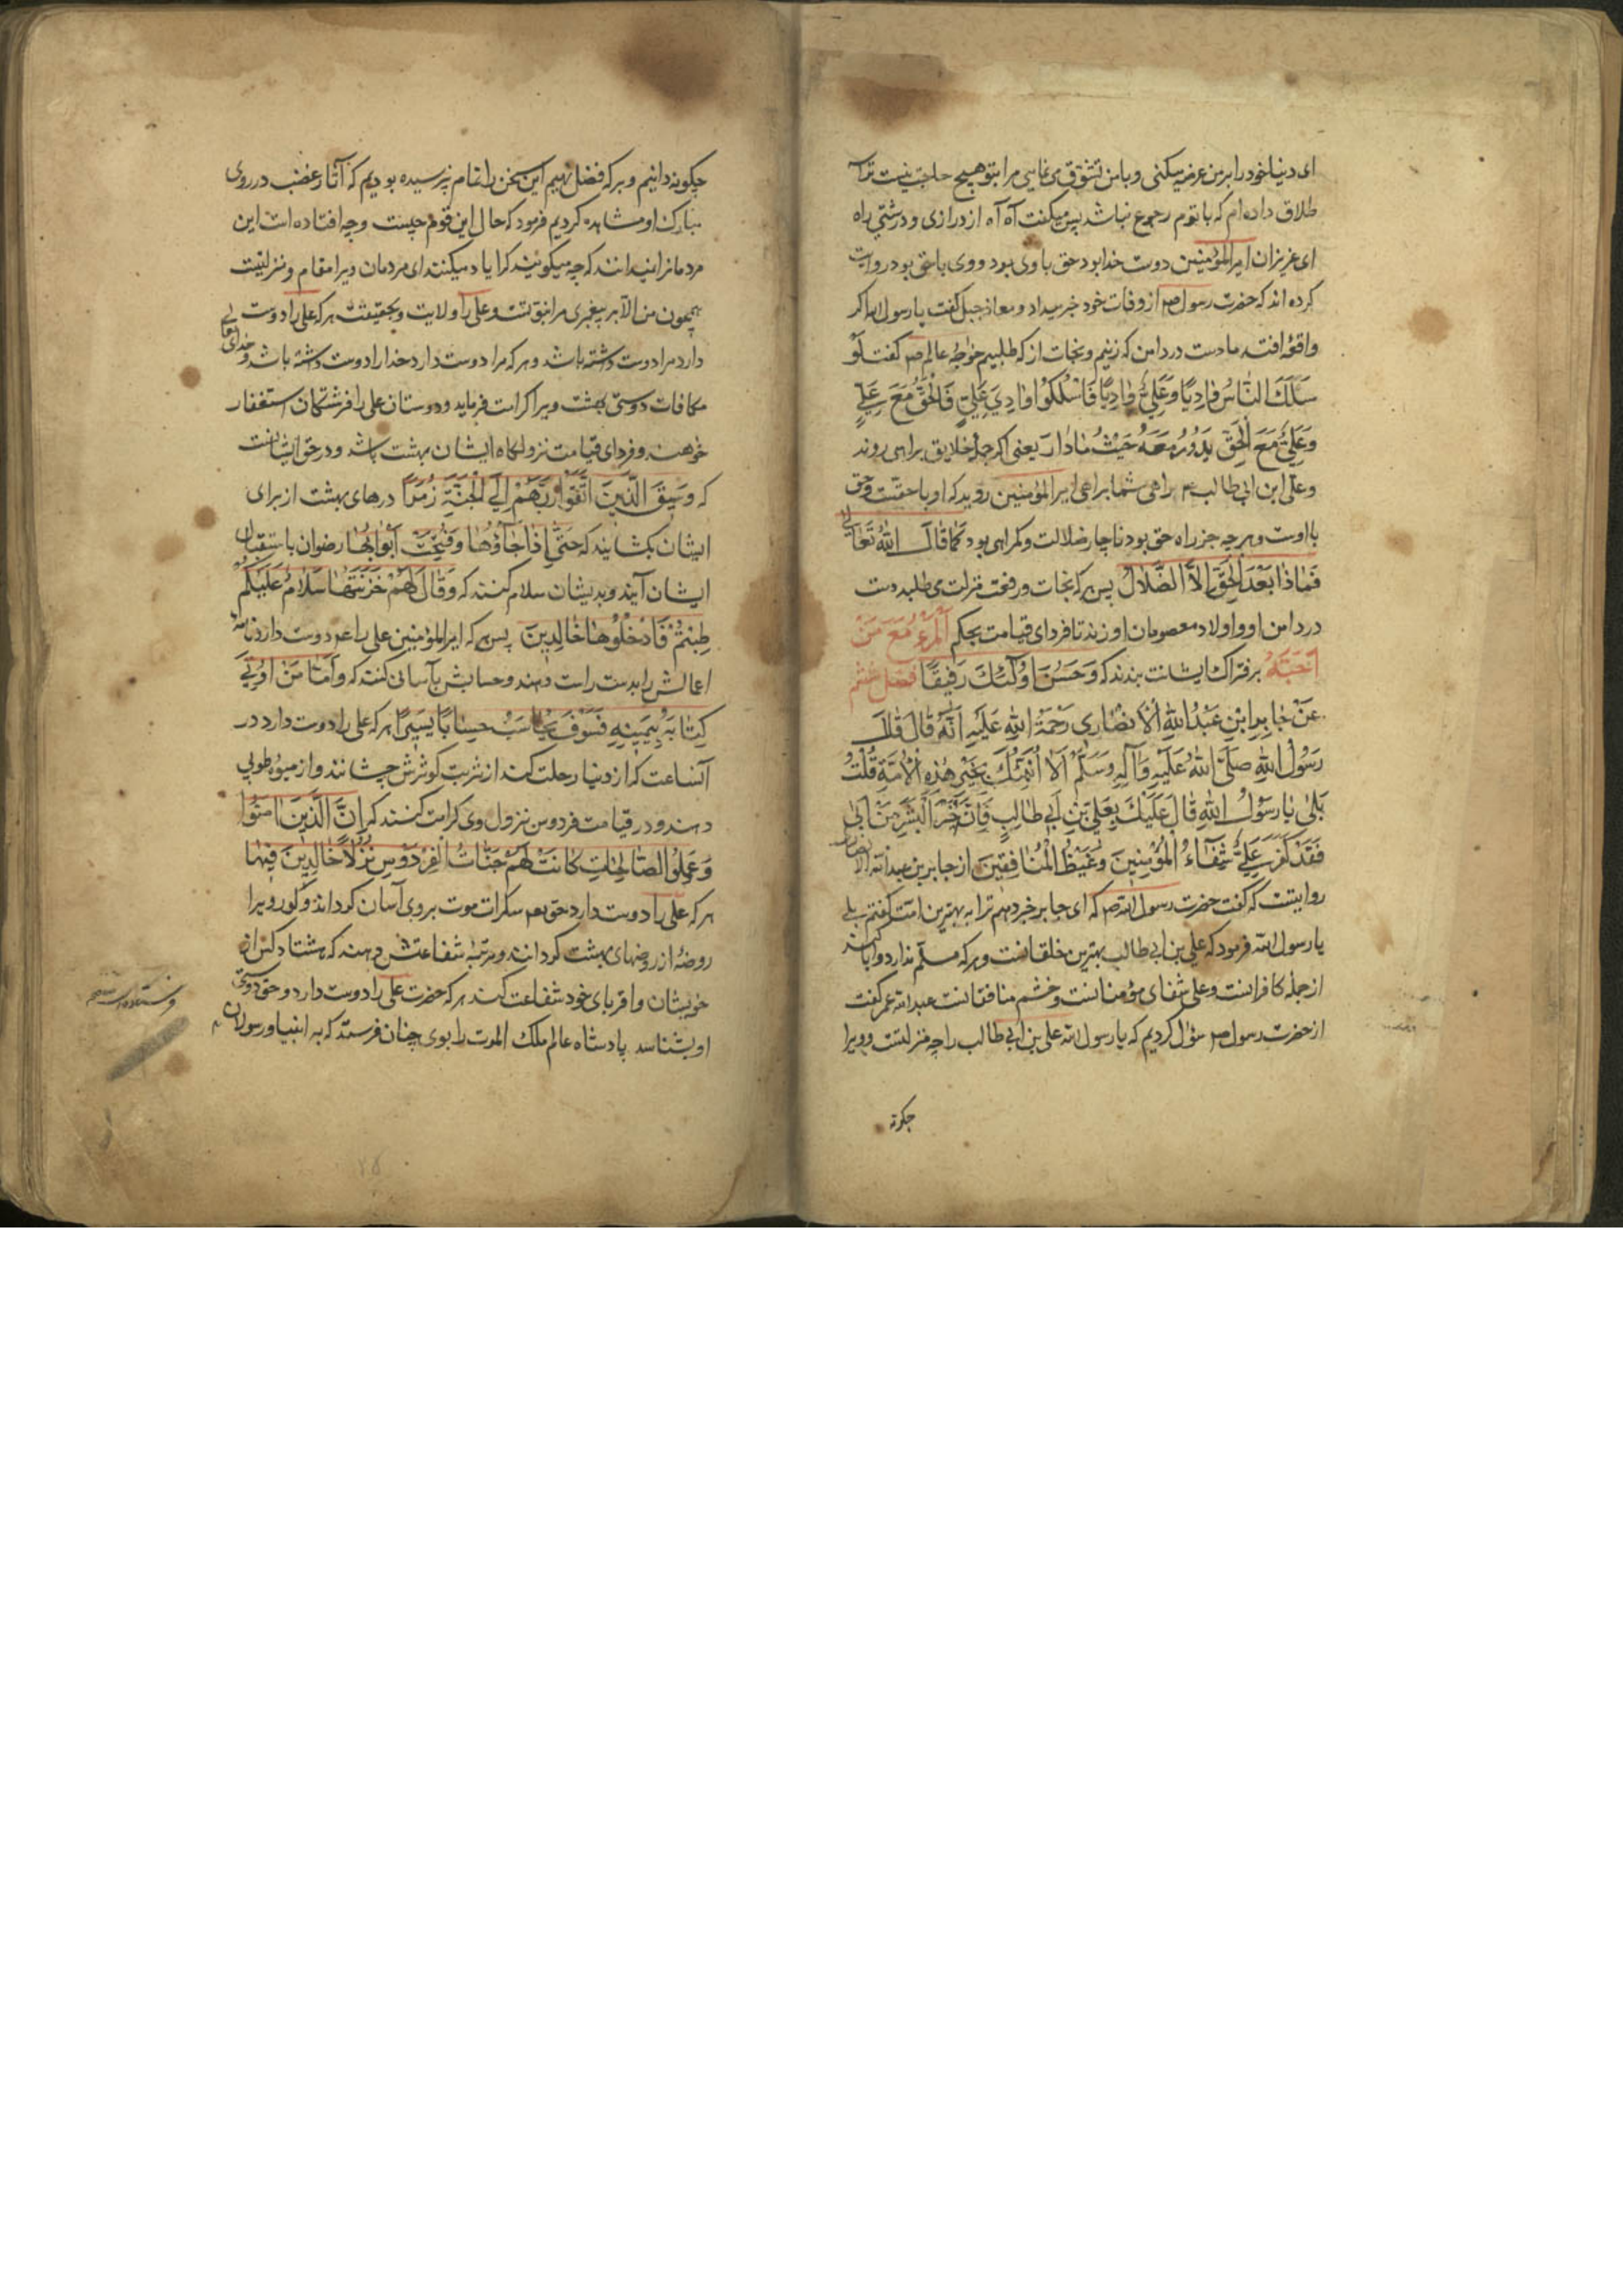 ای دنیا خود را بر من عرضه میکنی و با من تشوق می نمایی مرا بتو هیچ حاجت نیست ترا سه
طلاق داده‌ام که با توم رجوع نباشد پس میگفت آه آه از درازی و درشتی راه
ای عزیزان امیرالمؤمنین دوست خدا بود حق با وی بود و وی با حق بود روایت
کرده اند که حضرت رسول ص از وفات خود خبر میداد و معاذ جبل گفت یا رسول الله اگر
واقعه افتد ما دست در دامن که زنیم و نجات از که طلبیم خواجهٔ عالم ص گفت لَوْ
سَلَكَ النَّاسُ وٰادِیًا وَعَلِیٌّ وٰادِیًا فَاسْلُكُوا وٰادِیَ عَلِیٍّ فَالْحَقُّ مَعَ عَلِیٍّ
وَعَلِیٌّ مَعَ الْحَقِّ یَدُورُ مَعَهُ حَیْثُ مٰا دٰارَ یعنی اگر جملهٔ خلایق براهی روند
و علی ابن ابی طالب ع براهی شما براهی امیرالمؤمنین روید که او با حقست و حق
با اوست و هر چه جز راه حق بود ناچار ضلالت و گمراهی بود کَمٰا قٰالَ اللهُ تَعٰالی
فَمٰاذٰا بَعْدَ الْحَقِّ اِلاَّ الضَّلٰالُ پس هر که نجات و رفعت منزلت می طلبد دست
در دامن او و اولاد معصومان او زند تا فردای قیامت بحکم اَلْمَرْءُ مَعَ مَنْ
اَحَبَّهُ بر فتراک ایشانت بندند که وَحَسُنَ اُولٰئِكَ رَفِیقًا فصل ششم
عَنْ جٰابِرِ ابْنِ عَبْدِ اللهِ الْاَنْصٰارِی رَحْمَةُ اللهِ عَلَیْهِ اَنَّهُ قٰالَ قٰالَ
رَسُولُ اللهِ صَلَّی اللهُ عَلَیْهِ وَآلِهِ وَسَلَّمَ اَلٰا اُنَبِّئُكَ بِخَیْرِ هٰذِهِ الْاُمَّةِ قُلْتُ
بَلٰی یٰا رَسُولَ اللهِ قٰالَ عَلَیْكَ بِعَلِیِّ بْنِ اَبِی طٰالِبٍ فَاِنَّهُ خَیْرُ الْبَشَرِ مَنْ اَبٰی
فَقَدْ کَفَرَ عَلِیٌّ شِفٰاءُ الْمُؤْمِنِینَ وَغَیْظُ الْمُنٰافِقِینَ از جابر بن عبدالله الانصاری
روایتست که گفت حضرت رسول الله ص که ای جابر خبر دهم ترا به بهترین امت گفتم بلی
یا رسول الله فرمود که علی بن ابی طالب بهترین خلقانست و هر که مسلم ندارد و ابا کند
از جملهٔ کافرانست و علی شفای مؤمنانست و خشم منافقانست عبدالله عمر گفت
از حضرت رسول ص سؤال کردیم که یا رسول الله علی بن ابی طالب را چه منزلتست و ویرا
چکونه
چکونه دانیم و بر که فضل نهیم این سخن را تمام نپرسیده بودیم که آثار غضب در روی
مبارک او مشاهده کردیم فرمود که حال این قوم چیست و چه افتاده است این
مردمانرا نمیدانند که چه میگویند کرا یاد میکنند ای مردمان ویرا مقام و منزلتیست
همچون من الا بر پیغمبری مرا نبوتست و علی را ولایت و بحقیقت هر که علی را دوست
دارد مرا دوست داشته باشد و هر که مرا دوست دارد خدا را دوست داشته باشد و خدای تعالی
مکافات دوستی بهشت ویرا کرامت فرماید و دوستان علی را فرشتگان استغفار
خواهند و فردای قیامت نزولگاه ایشان بهشت باشد و در حق ایشانست
که وَسِیقَ الَّذِینَ اتَّقَوْا رَبَّهُمْ اِلَی الْجَنَّةِ زُمَرًا درهای بهشت از برای
ایشان بگشایند که حَتّٰی اِذٰا جٰاؤُهٰا وَفُتِحَتْ اَبْوٰابُهٰا رضوان باستقبال
ایشان آیند و بدیشان سلام کنند که وَقٰالَ لَهُمْ خَزَنَتُهٰا سَلٰامٌ عَلَیْکُمْ
طِبْتُمْ فَادْخُلُوهٰا خٰالِدِینَ پس هر که امیرالمؤمنین علی را ع دوست دارد نامه
اعمالش را بدست راست دهند و حسابش بآسانی کنند که وَاَمّٰا مَنْ اُوتِیَ
کِتٰابَهُ بِیَمِینِهِ فَسَوْفَ یُحٰاسَبُ حِسٰابًا یَسِیرًا هر که علی را دوست دارد در
آنساعت که از دنیا رحلت کند از شربت کوثرش چشانند و از میوهٔ طوبی
دهند و در قیامت فردوس نزول وی کرامت کنند که اِنَّ الَّذِینَ اٰمَنُوا
وَعَمِلُوا الصّٰالِحٰاتِ کٰانَتْ لَهُمْ جَنّٰاتُ الْفِرْدَوْسِ نُزُلًا خٰالِدِینَ فِیهٰا
هر که علی را دوست دارد حق تع سکرات موت بر وی آسان گرداند و گور ویرا
روضهٔ از روضهای بهشت گردانند و مرتبهٔ شفاعتش دهند که هشتاد کس از
خویشان و اقربای خود شفاعت کند هر که حضرت علی را دوست دارد و حق دوستی
او بشناسد پادشاه عالم ملک الموت را بوی چنان فرستد که به انبیا و رسولان